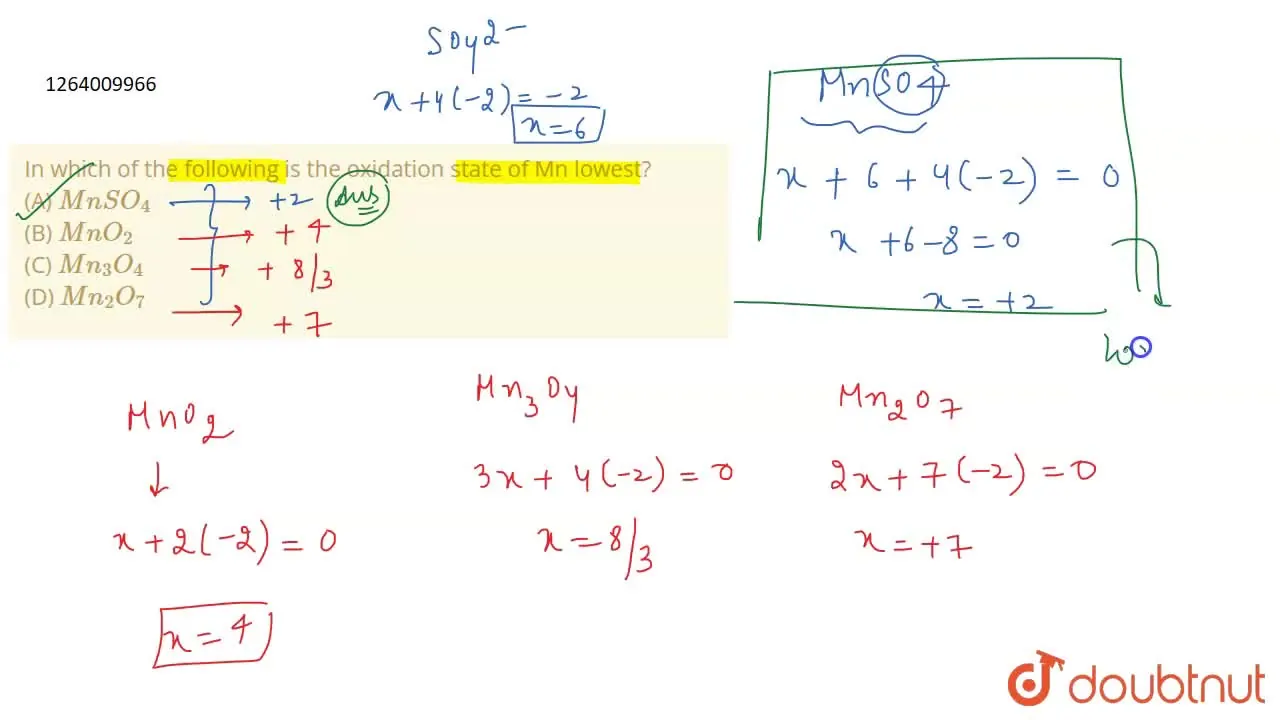 SO42-
1264009966
x+4(-2)=-2
x=6
Mn(SO4)
In which of the following is the oxidation state of Mn lowest?
(A) MnSO4 → +2 Ans
(B) MnO2 → +4
(C) Mn3O4 → +8/3
(D) Mn2O7 → +7
x + 6 + 4(-2) = 0
x +6-8=0
x = +2
MnO2
↓
x+2(-2)=0
x=4
Mn3O4
3x+4(-2)=0
x=8/3
Mn2O7
2x+7(-2)=0
x=+7
doubtnut